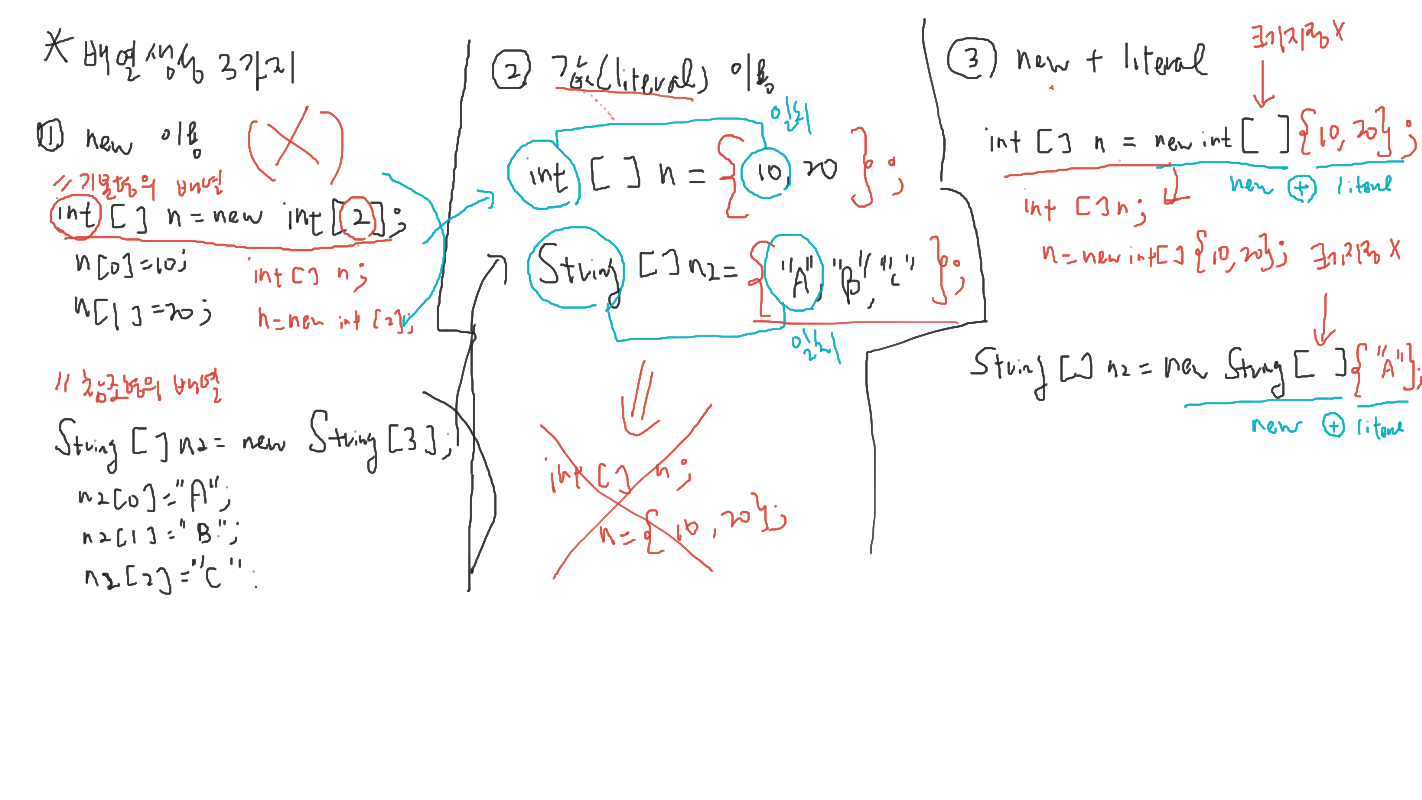 * 배열생성 3가지
① new 이용
// 기본형의 배열
int [ ] n = new int[2];
n[0]=10;
n[1]=20;
int [ ] n;
n=new int [2];
// 참조형의 배열
String [ ] n2 = new String[3];
n2[0]="A";
n2[1]="B";
n2[2]="C"
② 값(literal) 이용
일치
int [ ] n = { 10, 20 };
String [ ] n2 = { "A", "B", "C" };
일치
int [ ] n;
n={10, 20};
③ new + literal
크기지정 X
int [ ] n = new int [ ] {10, 20};
new + litera
int [ ] n;
n=new int[ ] {10, 20};
크기지정 X
String [ ] n2 = new String [ ] {"A"};
new + litera